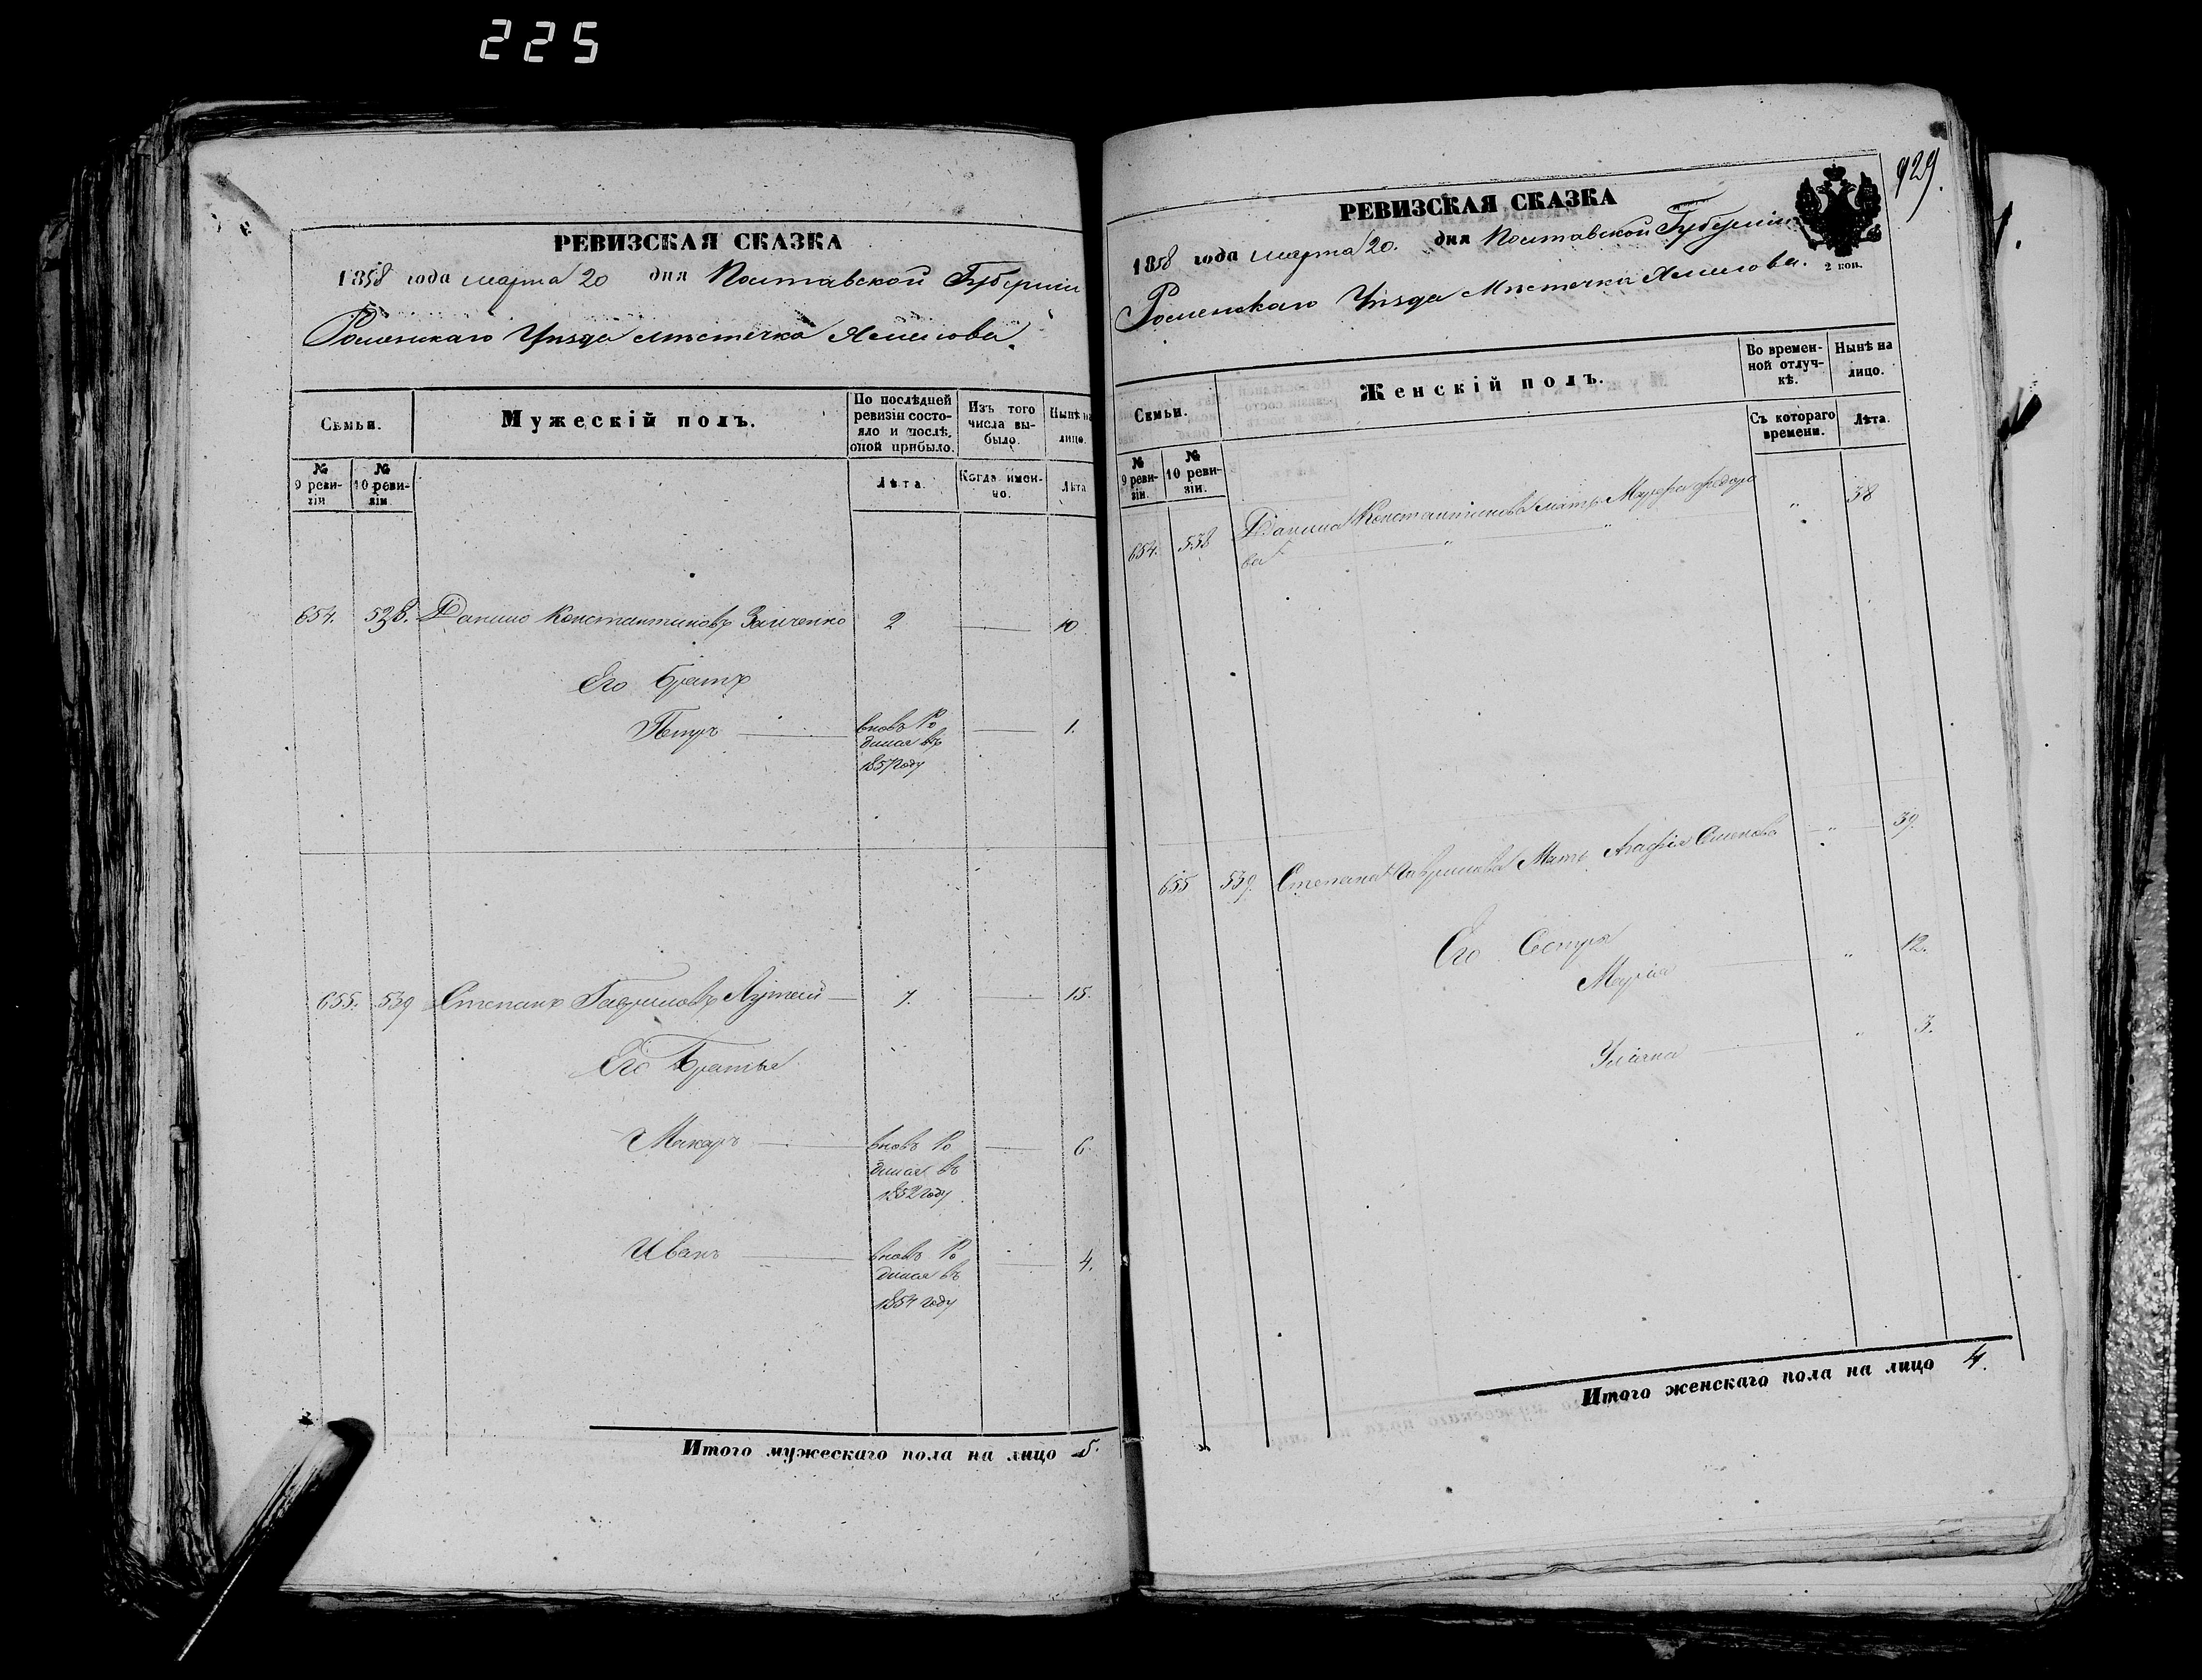 225
РЕВИЗСКАЯ СКАЗКА
1858 года марта 20 дня Полтавской Губерніи
Роменскаго Уѣзда мѣстечка Хмелова.
Семьи.
Мужескій полъ.
По послѣдней ревизіи состояло и послѣ оной прибыло.
Изъ того числа выбыло.
Нынѣ на лицо.
№ 9 ревизіи
№ 10 ревизіи.
Лѣта.
Когда именно.
Лѣта
654. 538. Данило Константиновъ Заиченко 2 — 10
Его братъ
Петръ — вновь ро — 1.
дился въ
1857 году
655. 539 Степанъ Гавриловъ — 7. — 15.
Его Братья
Макаръ — вновь ро — 6.
дился въ
1852 году
Иванъ — вновь ро — 4.
дился въ
1854 году
Итого мужескаго пола на лицо 5.
929.
РЕВИЗСКАЯ СКАЗКА
1858 года марта 20. дня Полтавской Губерніи
Роменскаго Уѣзда Мѣстечка Хмелова.
2 коп.
Семьи.
Женскій полъ.
Во временной отлучкѣ.
Нынѣ на лицо.
№ 9 ревизіи.
№ 10 ревизіи.
Съ котораго времени.
Лѣта.
654. 538 Данила Константинова мать Марфа Федоро „ 38
ва — „ — „
655 539. Степана Гаврилова Мать Агафія Семенова — „ — 39.
Его Сестра
Марія — „ 12.
Уліяна — „ 3.
Итого женскаго пола на лицо 4.